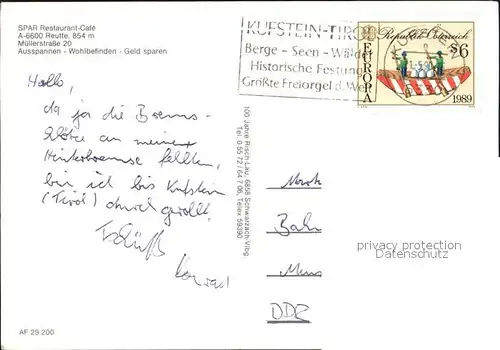 SPAR Restaurant-Café
A-6600 Reutte, 854 m
Müllerstraße 20
Ausspannen - Wohlbefinden - Geld sparen
KUFSTEIN-TIROL
Berge - Seen - Wälder
Historische Festung
Größte Freiorgel d. Welt
Republik Österreich
S6
EUROPA
1989
Hallo,
da ja die Brems-
klötze an meiner
Hinterbremse fehlten,
bin ich bis Kufstein
(Tirol) durch gerollt.
Tschüß
Konrad
100 Jahre Risch-Lau, 6858 Schwarzach-Vlbg.
Tel. 0 55 72 / 64 7 06, Telex 59390
Bah
DDR
privacy protection
AnsichtskartenCenter
AF 29.200